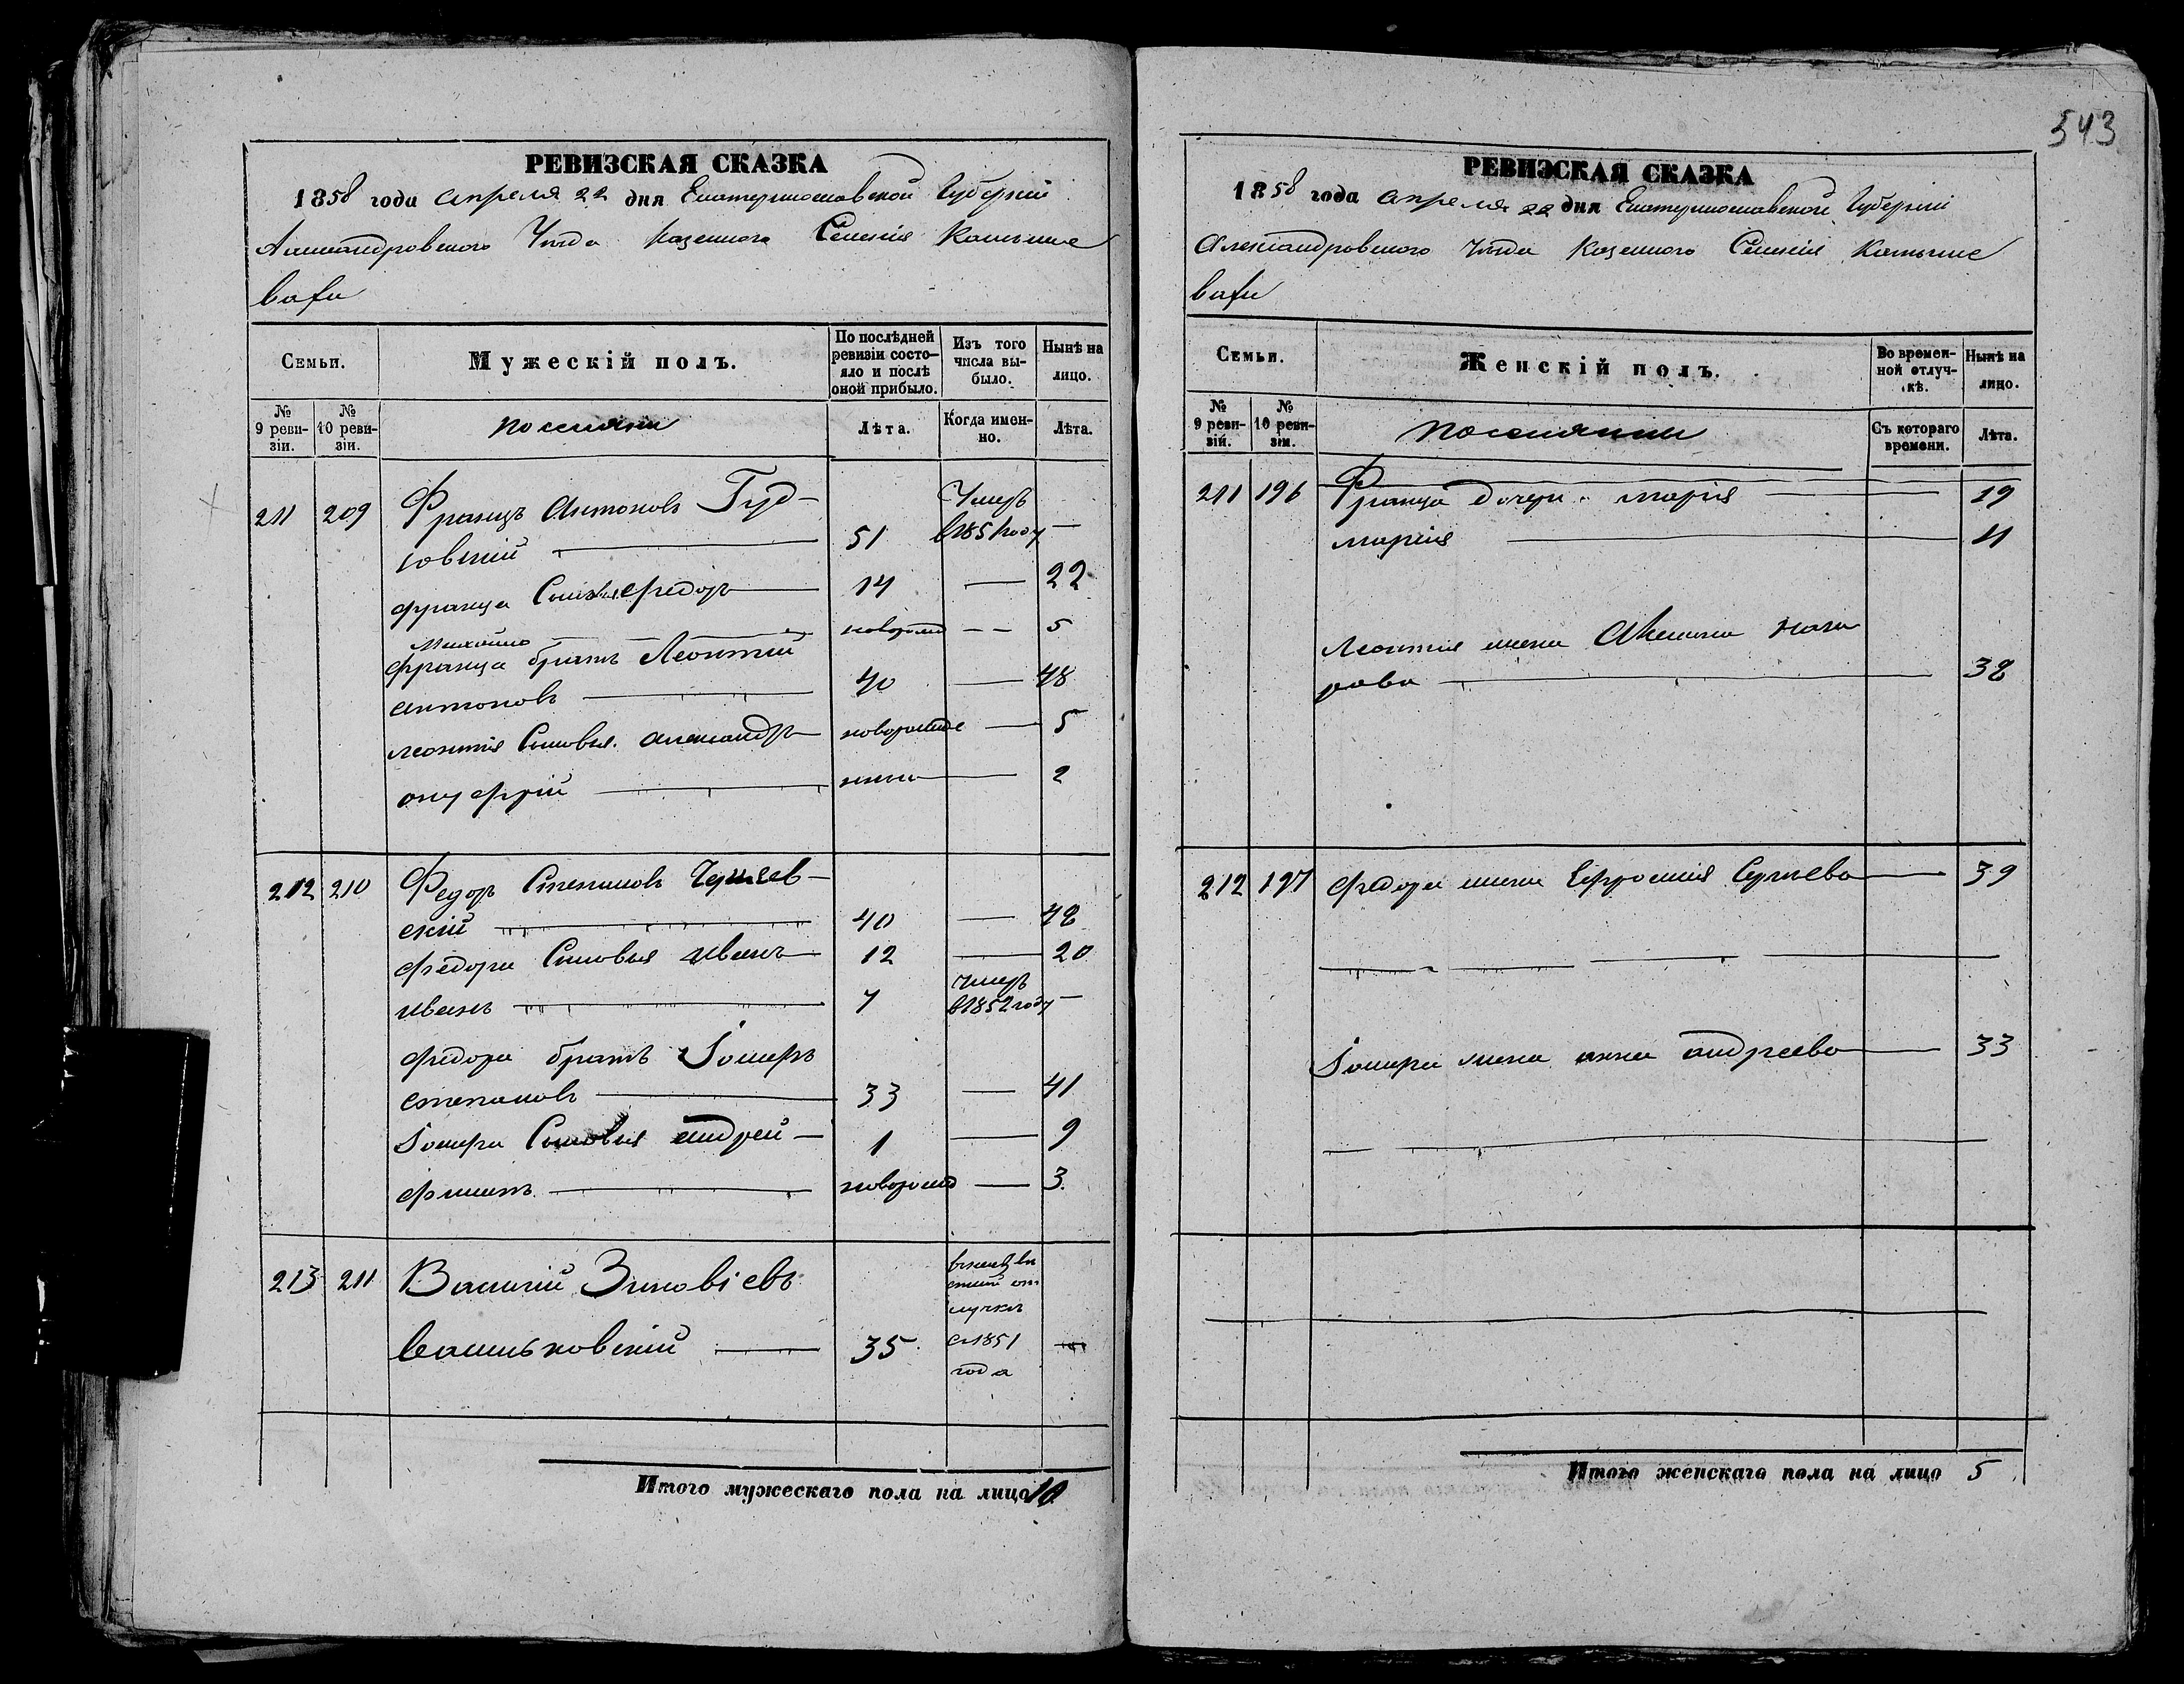 543
РЕВИЗСКАЯ СКАЗКА
1858 года апреля 22 дня Екатеринославской Губерніи
Александровского Уѣзда Казенного Селенія Камыше
ваhи
Семьи.
Мужескій полъ.
По послѣдней ревизіи состо-яло и послѣ оной прибыло.
Изъ того числа вы-было.
Нынѣ на лицо.
№ 9 реви-зіи.
№ 10 реви-зіи.
поселяни
Лѣта.
Когда имен-но.
Лѣта.
211 209 Францъ Антоновъ Гуд-
ковскій 51 Умеръ в 1851 году —
Франца Сыновья Федоръ 14 — 22
Михайло новорожд — — 5
Франца братъ Леонтій
Антоновъ 40 — 48
Леонтія Сыновья Александръ новорожде — 5
Онуфрій — 2
212 210 Федор Степановъ
скій 40 — 48
Федора Сыновья Иванъ 12 — 20
Иванъ 7 умеръ в 1852 году —
Федора братъ
Степановъ 33 — 41
Сыновья Андрей — 1 — 9
новорожд — 3.
213 211 Василій Зиновіевъ
Васильковскій 35 съ 1851 года
Итого мужескаго пола на лицо 10
РЕВИЗСКАЯ СКАЗКА
1858 года апреля 22 дня Екатеринославской Губерніи
Александровского Уѣзда Казенного Селенія Камыше
ваhи
Семьи.
Женскій полъ.
Во времен-ной отлуч-кѣ.
Нынѣ на лицо.
№ 9 реви-зіи.
№ 10 реви-зіи.
поселянки
Съ котораго времени.
Лѣта.
211 196 Франца дочери. Марія — 19
Марія 11
Леонтія жена Акелина Наза
рова 38
212 197 Федора жена Ефросинія Сергѣева — 39
жена Анна Андреева — 33
Итого женскаго пола на лицо 5